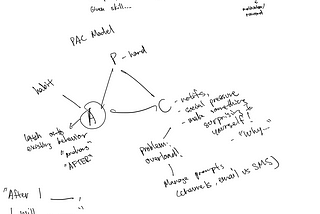 Given skill...
motivation/
reward
PAC Model
P - hard
habit
A
C
- notifs,
- social pressure
- make something
surprising to
yourself!
- "Why..."
latch onto
existing behavior
"AFTER"
problem:
overload!
Manage prompts
(channels, email vs SMS)
"After I ___,
I will